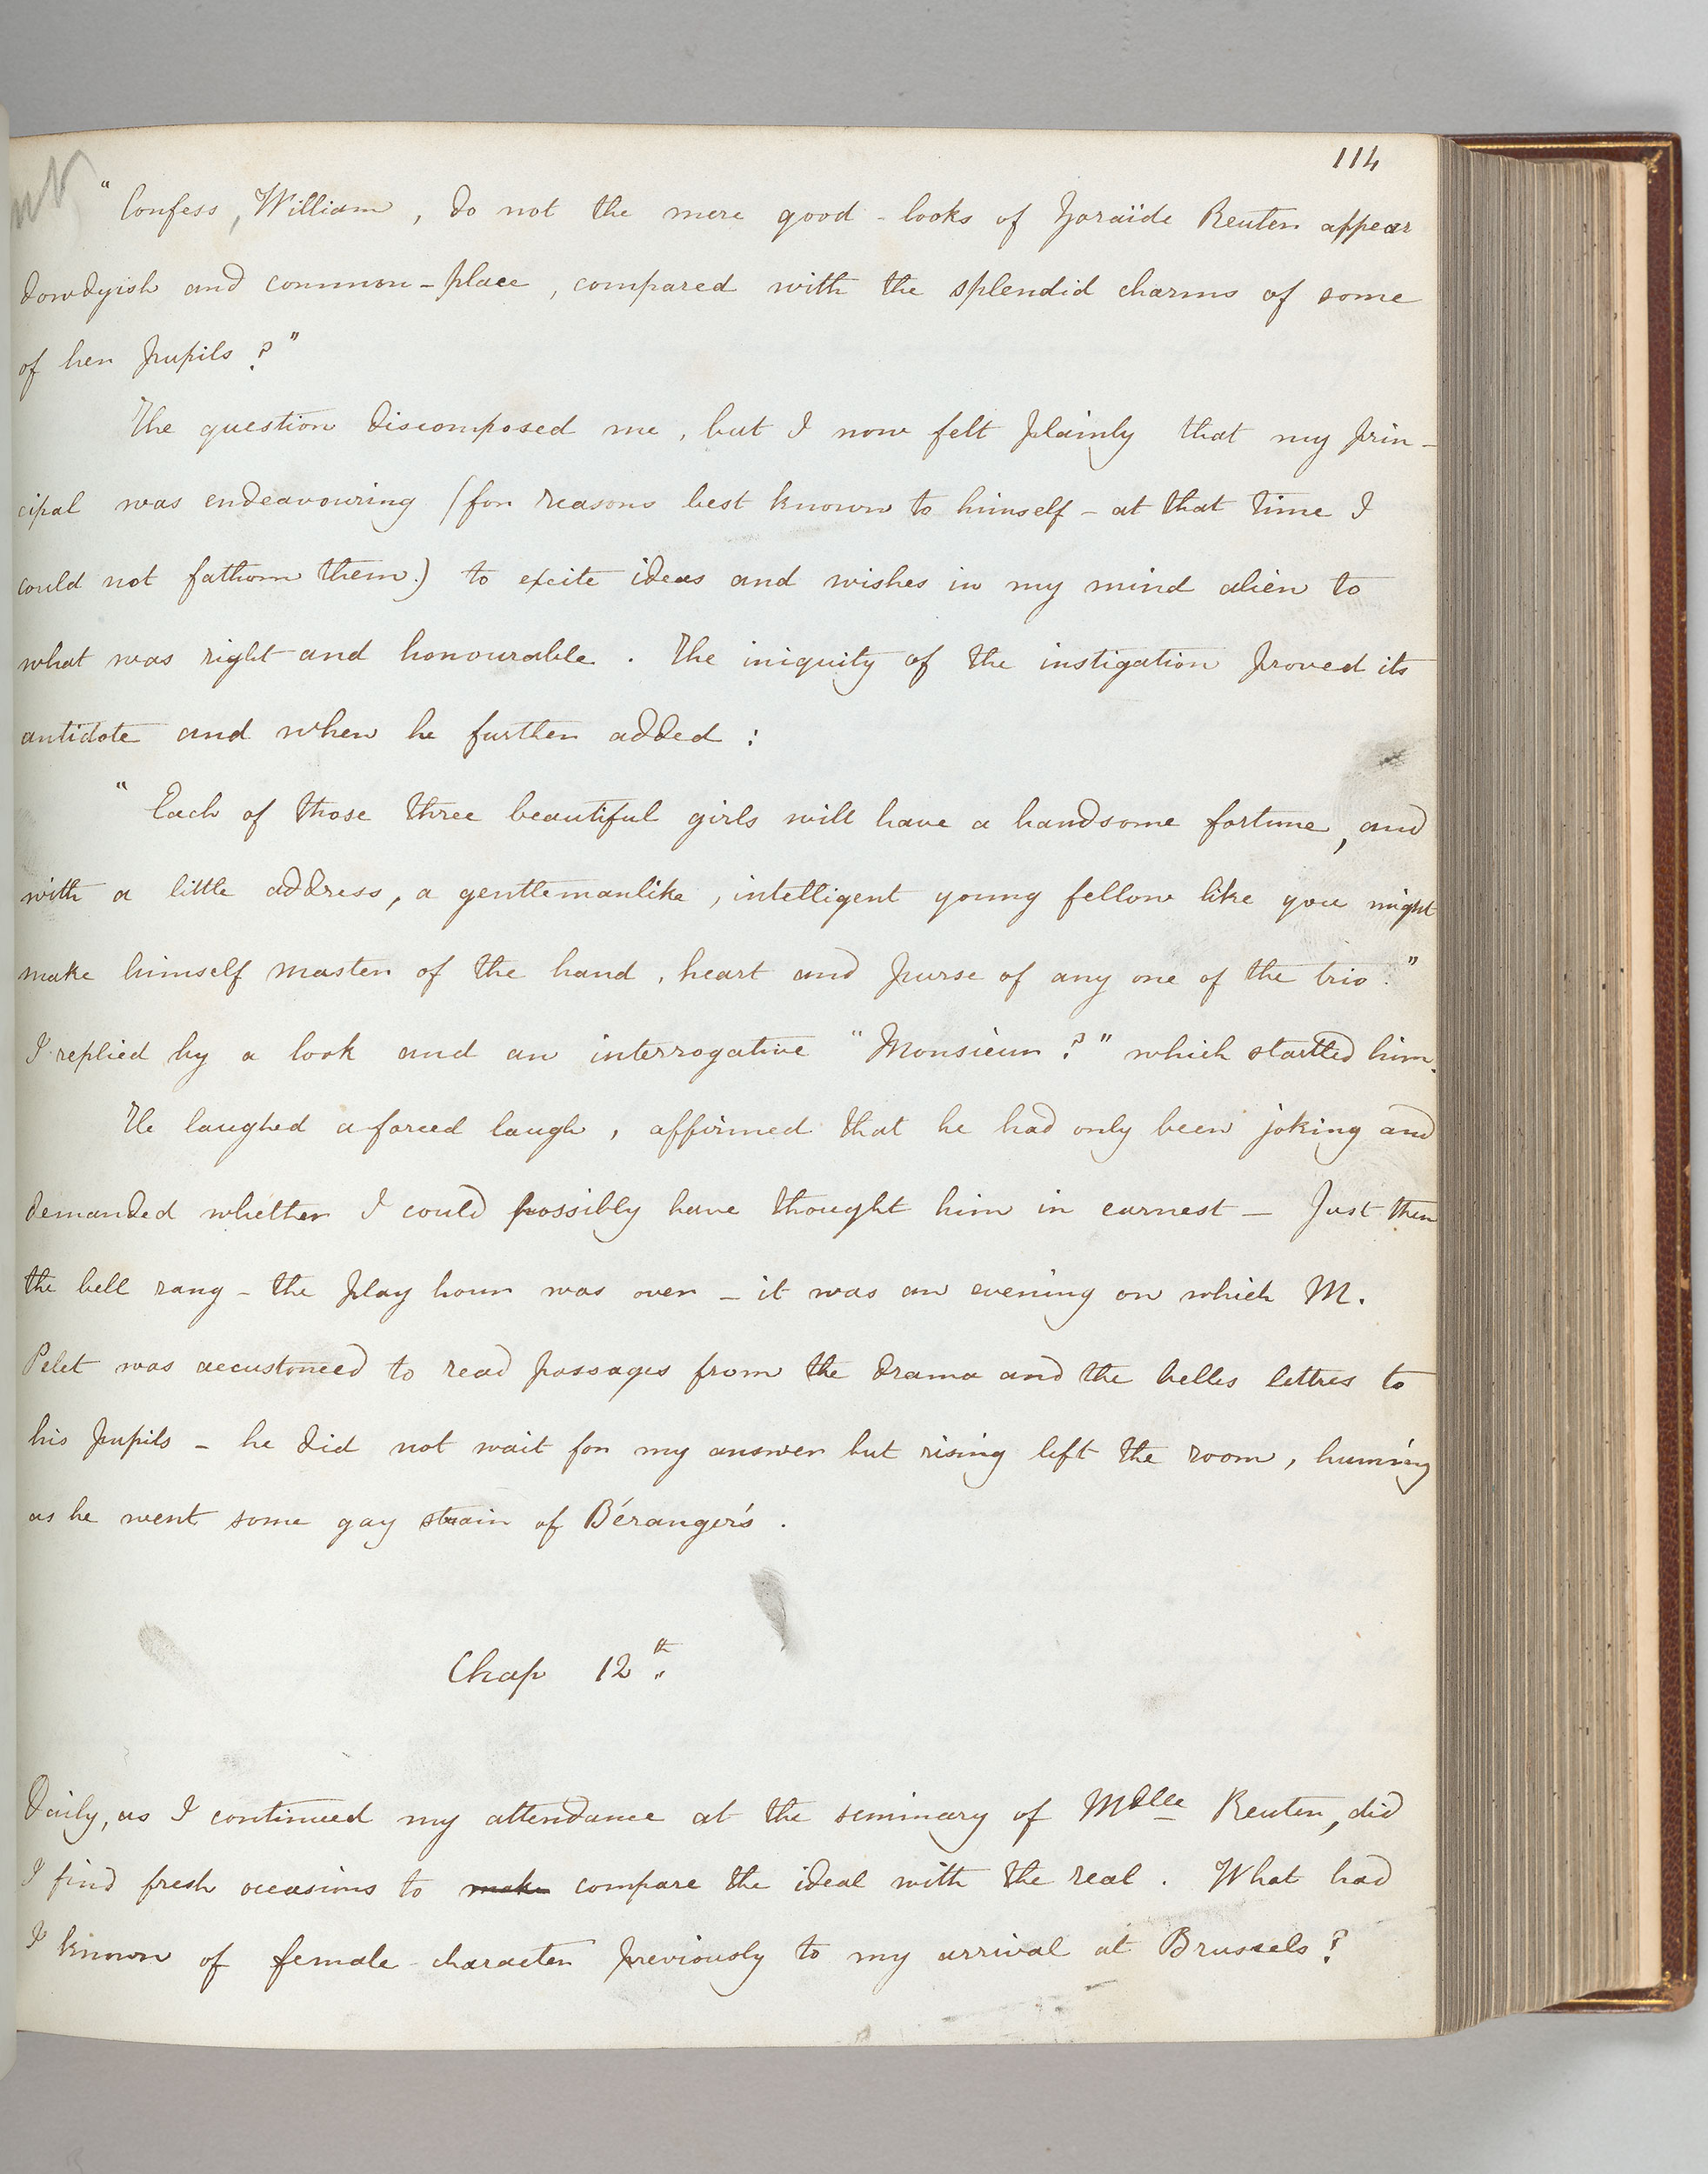 114
"Confess, William, do not the mere good-looks of Zoraïde Reuter appear
dowdyish and common-place, compared with the splendid charms of some
of her pupils?"
The question discomposed me, but I now felt plainly that my prin-
cipal was endeavouring (for reasons best known to himself - at that time I
could not fathom them.) to excite ideas and wishes in my mind alien to
what was right and honourable. The iniquity of the instigation proved its
antidote and when he further added:
"Each of those three beautiful girls will have a handsome fortune, and
with a little address, a gentlemanlike, intelligent young fellow like you might
make himself master of the hand, heart and purse of any one of the trio."
I replied by a look and an interrogative "Monsieur?" which startled him.
He laughed a forced laugh, affirmed that he had only been joking and
demanded whether I could possibly have thought him in earnest - Just then
the bell rang - the play hour was over - it was an evening on which M.
Pelet was accustomed to read passages from the drama and the belles lettres to
his pupils - he did not wait for my answer but rising left the room, huming
as he went some gay strain of Béranger's.
Chap 12th
Daily, as I continued my attendance at the seminary of Mdlle Reuter, did
I find fresh occasions to make compare the ideal with the real. What had
I known of female-character previously to my arrival at Brussels?